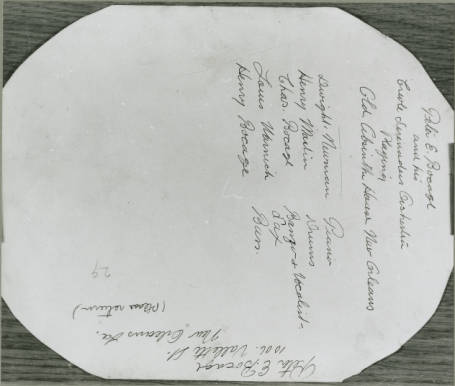 Peter E. Bocage
and his
Creole Serenaders Orchestra
Playing
Old Absinthe House New Orleans
Dwight Newman Piano
Henry Martin Drums
Chas. Bocage Banjo & Vocalist
Louis Warnick Sax
Henry Bocage Bass.
29
(Please return)
Peter E. Bocage
1006 Vallette St.
New Orleans La.